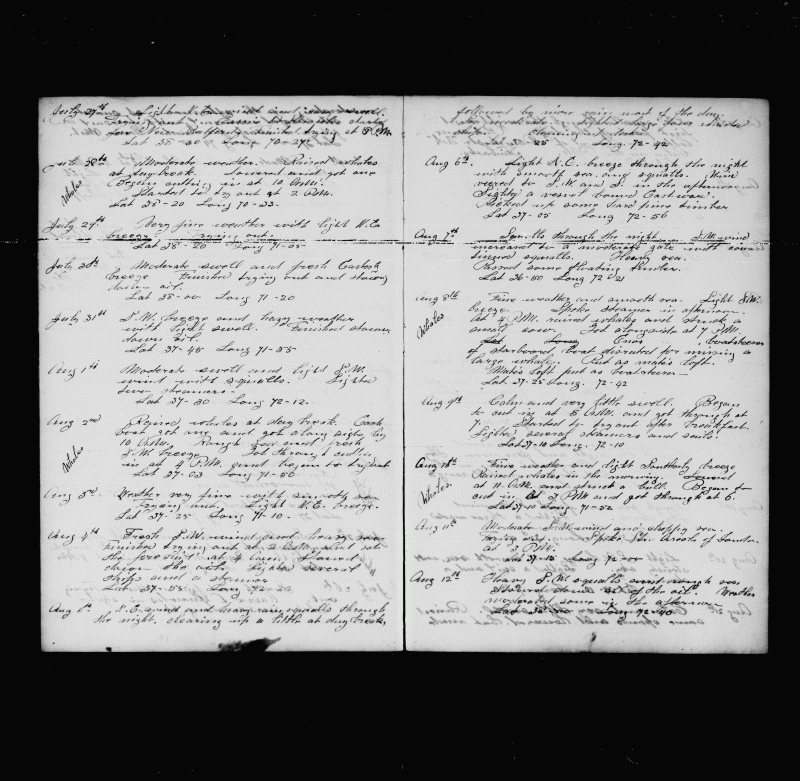 July 27th Light N.E. wind and
at 8 P.M.
Lat 38-00 Long 70-27
July 28th Moderate weather. Raised whales
at daybreak. Lowered and got one
Began cutting in at 10 A.M.
Started to try out at 2 P.M.
Lat 38-20 Long 70-33
Whales
July 29th Very fine weather with light N.E.
breeze trying out.
Lat 38-20 Long 71-05
July 30th Moderate swell and fresh Easterly
breeze Finished trying out and stowing
down oil.
Lat 38-00 Long 71-20
July 31st S.W. breeze and hazy weather
with light swell. Finished stowing
down oil.
Lat 37-45 Long 71-55
Aug 1st Moderate swell and light S.W.
wind with squalls. Sighted
two steamers.
Lat 37-30 Long 72-12
Aug 2nd Raised whales at daybreak. Each
boat got one and got along side by
10 A.M. Rough sea and fresh
S.W. breeze. Got through cutting
in at 4 P.M. and began to try out
Lat 37-03 Long 71-50
Whales
Aug 3d Weather very fine with smooth sea
Trying out. Light N.E. breeze.
Lat 37-25 Long 71-10
Aug 4th Fresh S.W. wind and heavy sea
Finished trying out at 2 A.M. and
down the oil, sighted several
ships and a steamer
Lat 37-55 Long
Aug 5th S.E. wind and heavy rain squalls through
the night, clearing up a little at day break,
followed by more rain most of the day
Lat 37-25 Long. 72-42
Aug 6th Light N.E. breeze through the night
with smooth sea and squalls. Wind
veered to S.W. and S. in the afternoon
Sighted a vessel bound Eastward.
Picked up some hard pine timber
Lat 37-05 Long 72-56
Aug 7th Squalls through the night S.W. wind
increased to a moderate gale with con-
tinued squalls. Heavy sea.
Passed some floating timber.
Lat 36-50 Long 72-21
Aug 8th Fine weather and smooth sea. Light S.W.
breeze. Spoke steamer in afternoon.
At 4 P.M. raised whales and struck a
small cow. Got alongside at 7 P.M.
Lat Long Enos boatsteerer
of starboard boat disrated for missing a
large whale. Put as mate's loft.
Mate's loft put as boatsteerer
Lat 37-25 Long. 72-42
Whales
Aug 9th Calm and very little swell. Began
to cut in at 5 A.M. and got through at
7. Started to try out after breakfast.
Sighted several steamers and sails.
Lat 37-10 Long. 72-10
Aug 10th Fine weather and light Southerly breeze
Raised whales in the morning. Lowered
at 11 A.M. and struck a bull. Began to
cut in at 3 PM and got through at 6.
Lat 37-10 Long 71-52
Whales.
Aug 11th Moderate S.W. wind and choppy sea.
trying out. Spoke
at 3 P.M.
Lat 37-15 Long 72
Aug 12th Heavy S.W. squalls and rough sea
Stowed down of the oil. Weather
moderated some in the afternoon
Lat Long 72-40